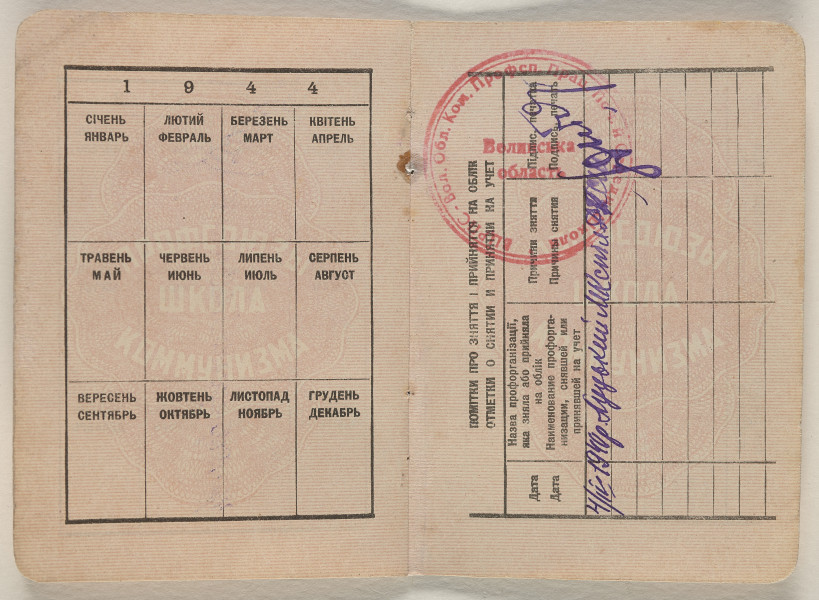 1 9 4 4
СІЧЕНЬ
ЯНВАРЬ
ЛЮТИЙ
ФЕВРАЛЬ
БЕРЕЗЕНЬ
МАРТ
КВІТЕНЬ
АПРЕЛЬ
ТРАВЕНЬ
МАЙ
ЧЕРВЕНЬ
ИЮНЬ
ЛИПЕНЬ
ИЮЛЬ
СЕРПЕНЬ
АВГУСТ
ВЕРЕСЕНЬ
СЕНТЯБРЬ
ЖОВТЕНЬ
ОКТЯБРЬ
ЛИСТОПАД
НОЯБРЬ
ГРУДЕНЬ
ДЕКАБРЬ
ПРОФСОЮЗЫ
ШКОЛА
КОММУНИЗМА
ПОМІТКИ ПРО ЗНЯТТЯ І ПРИЙНЯТТЯ НА ОБЛІК
ОТМЕТКИ О СНЯТИИ И ПРИНЯТИИ НА УЧЕТ
Дата
Дата
Назва профорганізації,
яка зняла або прийняла
на облік
Наименование профорга-
низации, снявшей или
принявшей на учет
Причини зняття
Причины снятия
Підпис, печатка
Подпись, печать
Луцький
Вол. Обл. Ком. Профсп. Прац.
Волинська
область
ПРОФСОЮЗЫ
ШКОЛА
КОММУНИЗМА